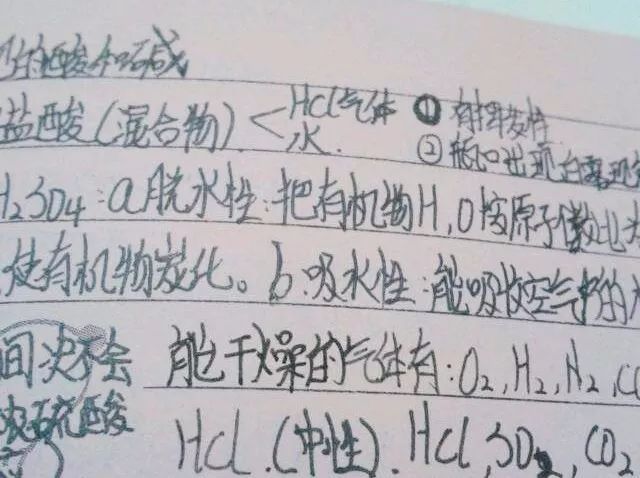 的酸和碱
盐酸(混合物)<HCl气体 ①有挥发性
水. ②瓶口出现白雾现
H2SO4:a脱水性:把有机物H,O按原子个数比为
使有机物炭化。b.吸水性:能吸收空气中的
间决不会 能干燥的气体有:O2,H2,N2,CO
浓硫酸 HCl.(中性).HCl,SO2,CO2